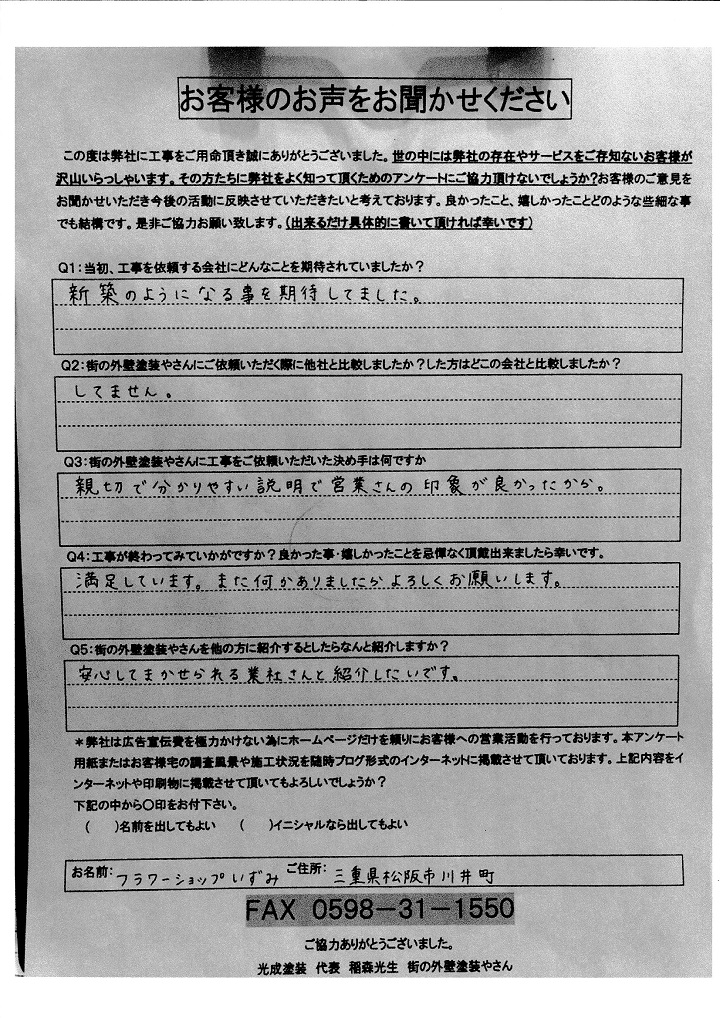 お客様のお声をお聞かせください
この度は弊社に工事をご用命頂き誠にありがとうございました。世の中には弊社の存在やサービスをご存知ないお客様が
沢山いらっしゃいます。その方たちに弊社をよく知って頂くためのアンケートにご協力頂けないでしょうか?お客様のご意見を
お聞かせいただき今後の活動に反映させていただきたいと考えております。良かったこと、嬉しかったことどのような些細な事
でも結構です。是非ご協力お願い致します。(出来るだけ具体的に書いて頂ければ幸いです)
Q1:当初、工事を依頼する会社にどんなことを期待されていましたか?
新築のようになる事を期待してました。
Q2:街の外壁塗装やさんにご依頼いただく際に他社と比較しましたか?した方はどこの会社と比較しましたか?
してません。
Q3:街の外壁塗装やさんに工事をご依頼いただいた決め手は何ですか
親切で分かりやすい説明で営業さんの印象が良かったから。
Q4:工事が終わってみていかがですか?良かった事・嬉しかったことを忌憚なく頂戴出来ましたら幸いです。
満足しています。また何かありましたらよろしくお願いします。
Q5:街の外壁塗装やさんを他の方に紹介するとしたらなんと紹介しますか?
安心してまかせられる業社さんと紹介したいです。
*弊社は広告宣伝費を極力かけない為にホームページだけを頼りにお客様への営業活動を行っております。本アンケート
用紙またはお客様宅の調査風景や施工状況を随時ブログ形式のインターネットに掲載させて頂いております。上記内容をイ
ンターネットや印刷物に掲載させて頂いてもよろしいでしょうか?
下記の中から〇印をお付下さい。
( )名前を出してもよい ( )イニシャルなら出してもよい
お名前: フラワーショップいずみ ご住所: 三重県松阪市川井町
FAX 0598-31-1550
ご協力ありがとうございました。
光成塗装 代表 稲森光生 街の外壁塗装やさん